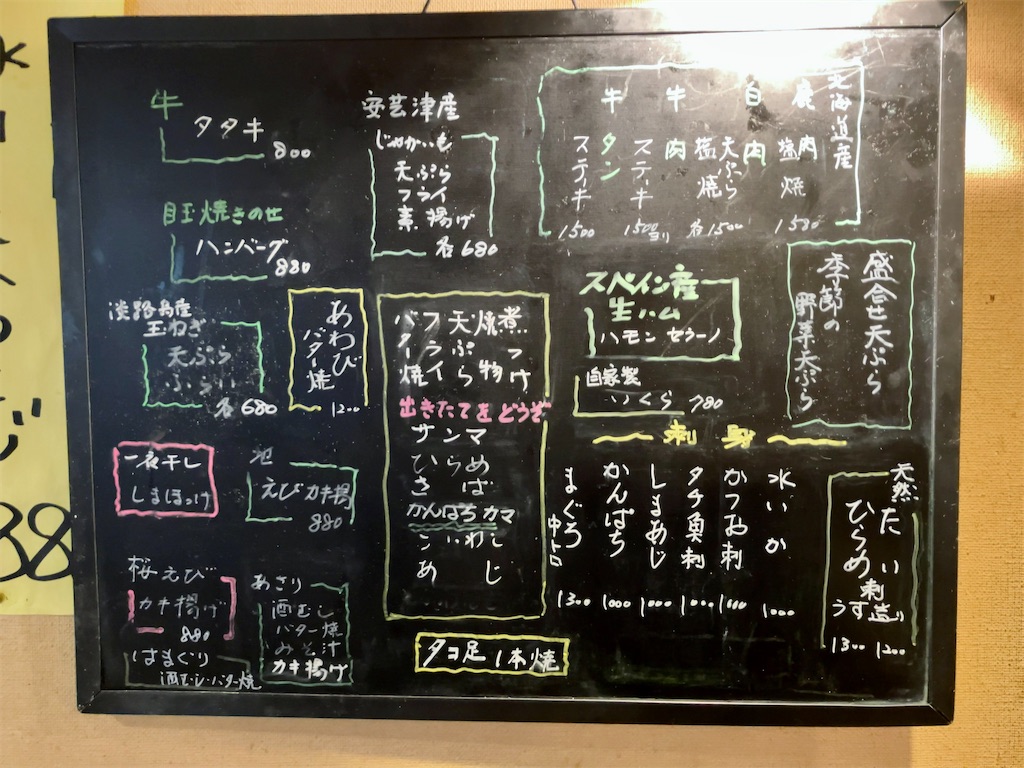 牛
タタキ
800
目玉焼きのせ
ハンバーグ
880
淡路島産
玉ねぎ
天ぷら
ふらい
各680
一夜干し
しまほっけ
桜えび
カキ揚げ
880
はまぐり
酒むし・バター焼
安芸津産
じゃがいも
天ぷら
フライ
素揚げ
各680
あわび
バター焼
1200
えびカキ揚
880
あさり
酒むし
バター焼
みそ汁
カキ揚げ
煮つけ
焼物
天ぷら
フライ
バター焼
出きたてをどうぞ
サンマ
ひらめ
さば
かんぱちカマ
タコ足1本焼
北海道産
鹿肉塩焼
1580
白肉
天ぷら
塩焼
各1500
牛肉ステーキ
1500ヨリ
牛タンステーキ
1500
スペイン産
生ハム
ハモンセラーノ
自家製
いくら 780
盛合せ天ぷら
季節の
野菜天ぷら
刺身
水いか
1000
かつお刺
1000
タチ魚刺
1000
しまあじ
1000
かんぱち
1000
まぐろ
中トロ
1300
天然
たい
ひらめ
刺
うす造り
1300 1200
88